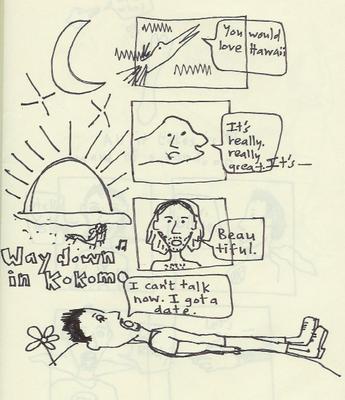 You would
love Hawaii
It's
really.
really
great. It's—
Beau
tiful.
Way down
in Kokomo
I can't talk
now. I got a
date.